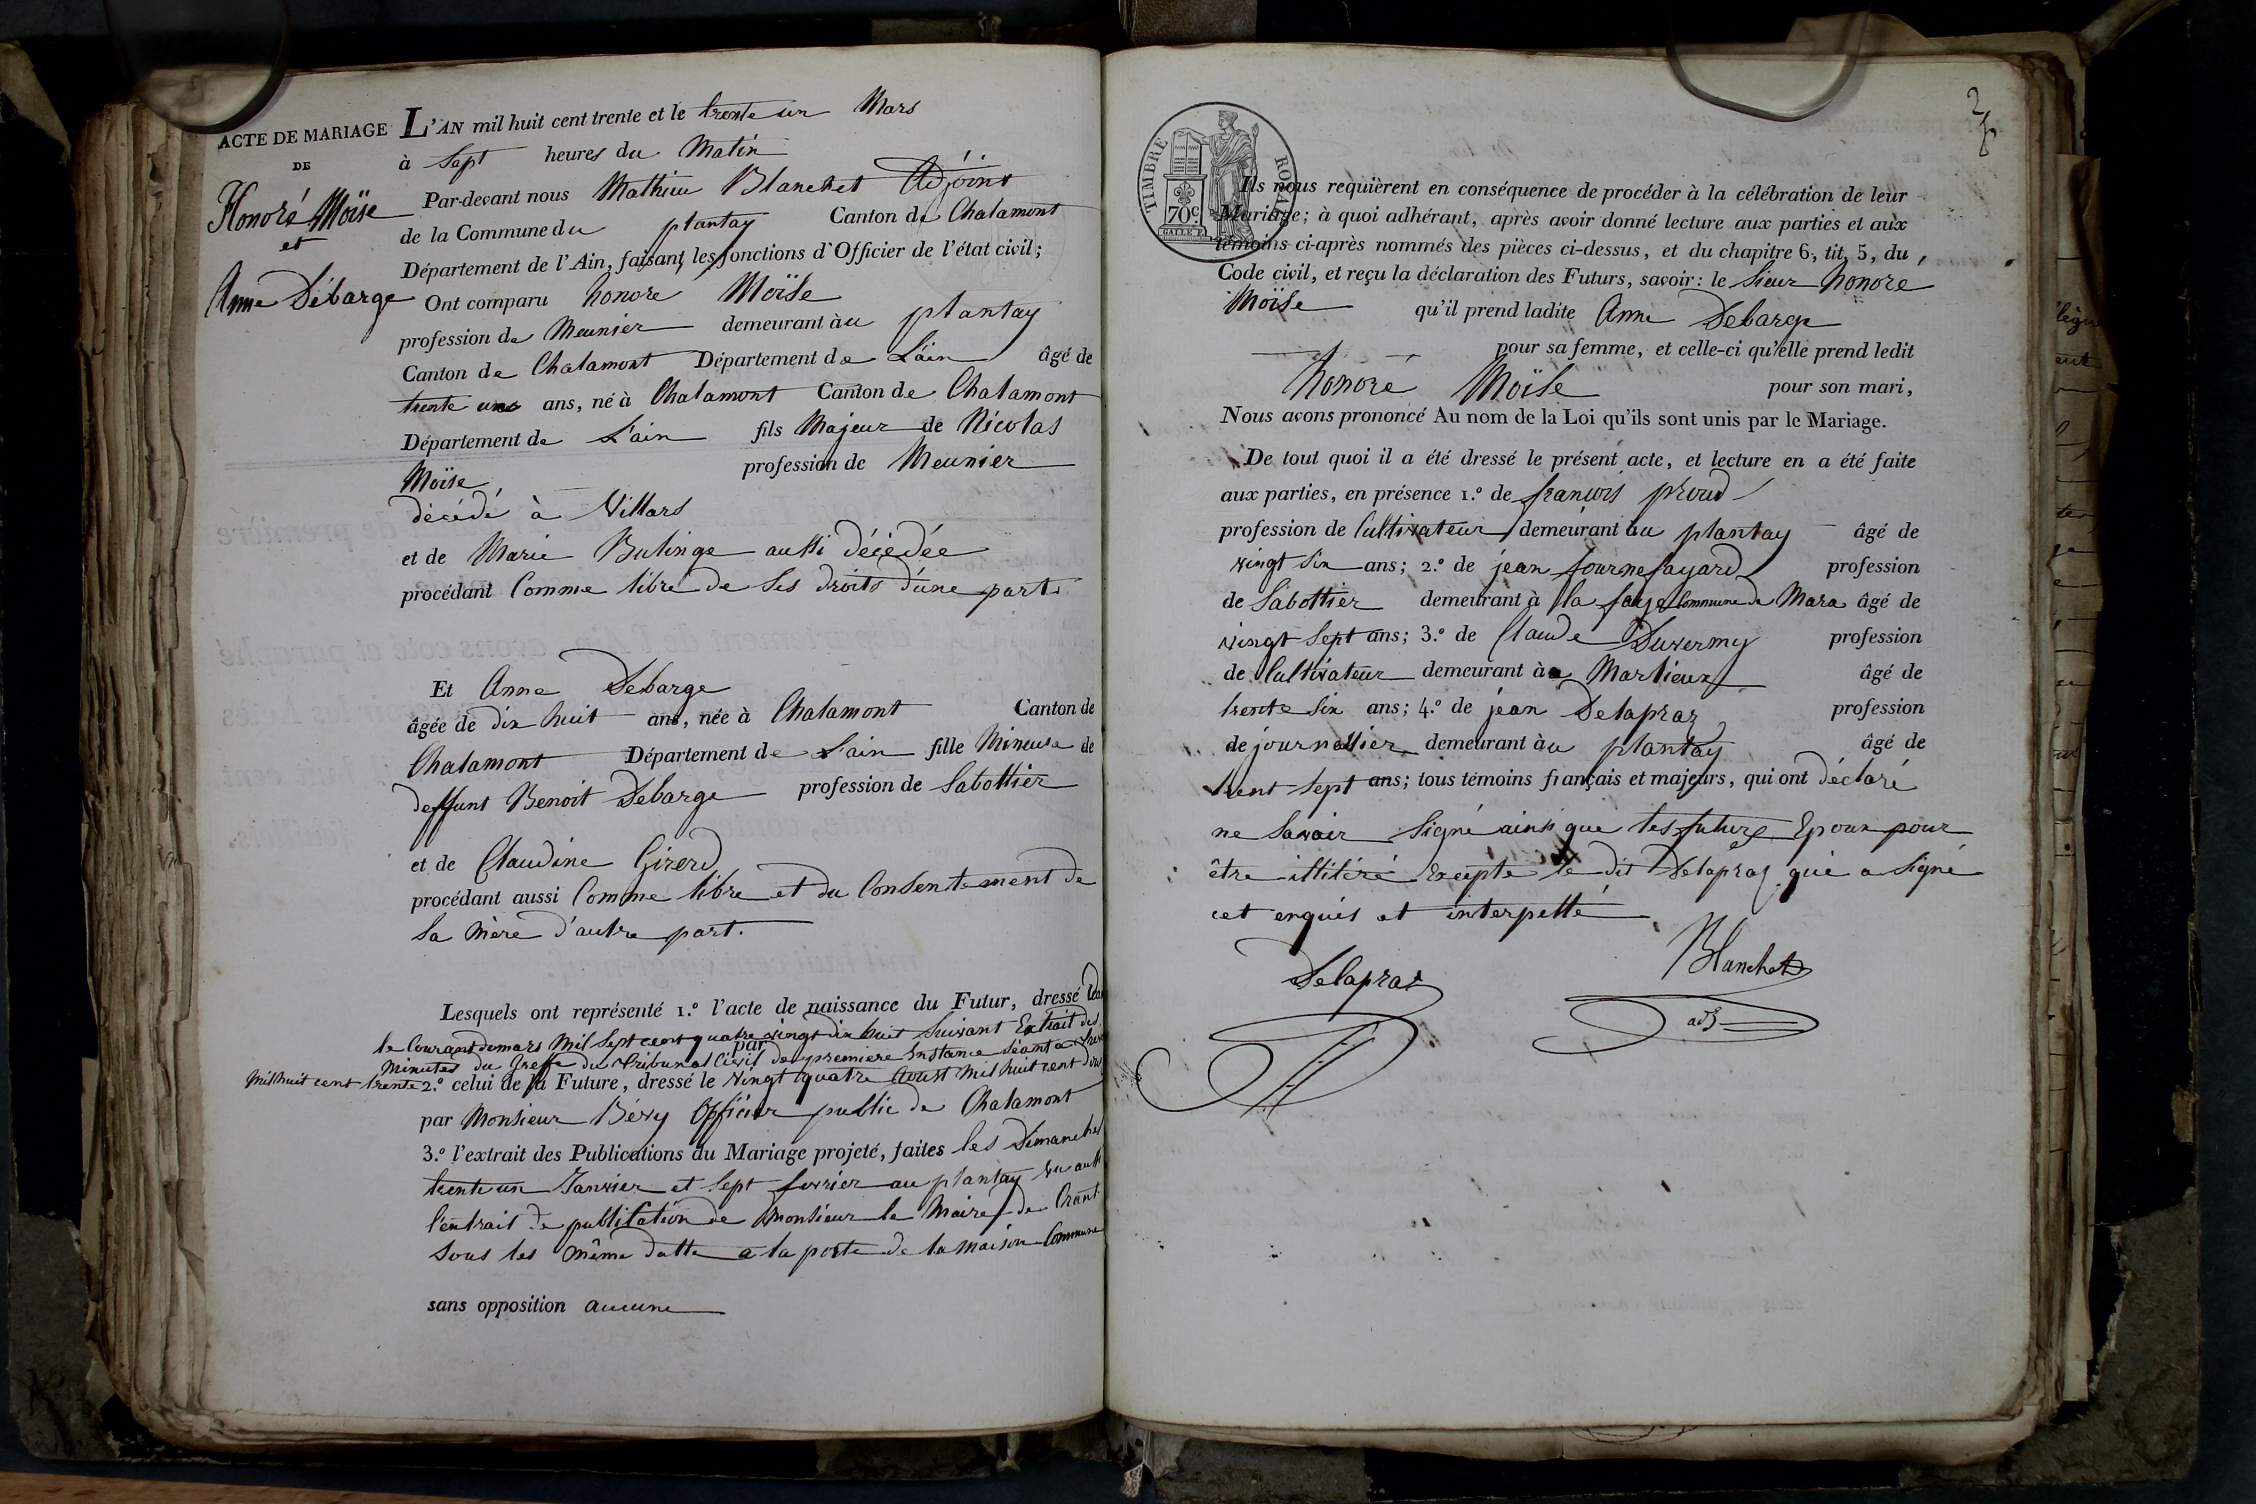 ACTE DE MARIAGE
DE
Honoré Moïse
et
Anne Debarge
L'AN mil huit cent trente et le trente un Mars
à Sept heures du Matin
Par-devant nous Mathieu Blanchet Adjoint
de la Commune du plantay Canton de Chalamont
Département de l'Ain, faisant les fonctions d'Officier de l'état civil;
Ont comparu honoré Moïse
profession de Meunier demeurant àu plantay
Canton de Chalamont Département de L'ain âgé de
trente uns ans, né à Chalamont Canton de Chalamont
Département de L'ain fils Majeur de Nicolas
Moïse profession de Meunier
décédé à Villars
et de Marie Bulinge aussi décédée
procédant Comme libre de Ses droits d'une part.
Et Anne Debarge
âgée de dix huit ans, née à Chalamont Canton de
Chalamont Département de L'ain fille Mineure de
deffunt Benoit Debarge profession de Sabottier
et de Claudine Girerd
procédant aussi Comme libre et du Consentement de
Sa Mère d'autre part.
Lesquels ont représenté 1.º l'acte de naissance du Futur, dressé
le Courant de mars Mil Sept cent quatre vingt dix huit Suivant Extrait des
par
Minutes du Greffe du Tribunal Civil de premiere Instance Séant a
Mil huit cent trente 2.º celui de la Future, dressé le vingt quatre Aoust Mil huit cent
par Monsieur Béxy Officier public de Chalamont
3.º l'extrait des Publications du Mariage projeté, faites les Dimanches
trente un Janvier et Sept fevrier au plantay vu aussi
l'extrait de publication de Monsieur le Maire de Crant
Sous les même datte a la porte de la maison Commune
sans opposition aucune
TIMBRE ROYAL
70c.
Ils nous requièrent en conséquence de procéder à la célébration de leur
Mariage; à quoi adhérant, après avoir donné lecture aux parties et aux
témoins ci-après nommés des pièces ci-dessus, et du chapitre 6, tit. 5, du
Code civil, et reçu la déclaration des Futurs, savoir: le Sieur honoré
Moïse qu'il prend ladite Anne Debarge
pour sa femme, et celle-ci qu'elle prend ledit
honoré Moïse pour son mari,
Nous avons prononcé Au nom de la Loi qu'ils sont unis par le Mariage.
De tout quoi il a été dressé le présent acte, et lecture en a été faite
aux parties, en présence 1.º de françois proud
profession de Cultivateur demeurant àu plantay âgé de
vingt Six ans; 2.º de jean fournefayard profession
de Sabottier demeurant à la forge Commune de Mara âgé de
vingt Sept ans; 3.º de Claude Duvermy profession
de Cultivateur demeurant àa Marlieux âgé de
trente Six ans; 4.º de jean Delapraz profession
de journallier demeurant àu plantay âgé de
trent Sept ans; tous témoins français et majeurs, qui ont déclaré
ne Savoir Signé ainsi que les future Epoux pour
être illitéré Excepte le dit Delapraz qui a Signé
cet enquis et interpellé
Delapraz
Blanchet
adj